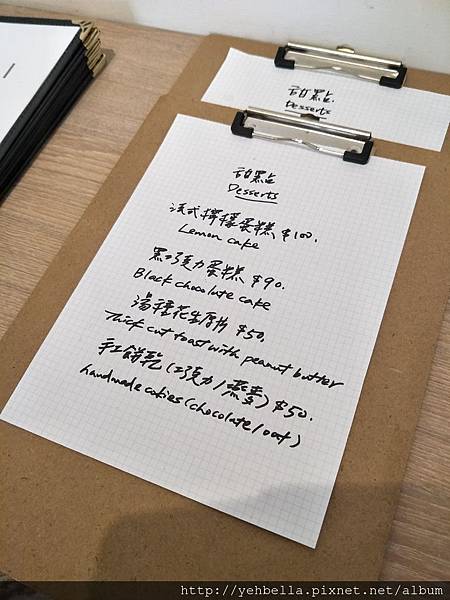 甜點
Desserts
甜點
Desserts
法式檸檬蛋糕 $100.
Lemon cake
黑巧克力蛋糕 $90.
Black chocolate cake
湯種花生厚片 $50.
Thick cut toast with peanut butter
手工餅乾(巧克力/燕麥) $50.
handmade cookies(chocolate/oat)
http://yehbella.pixnet.net/album